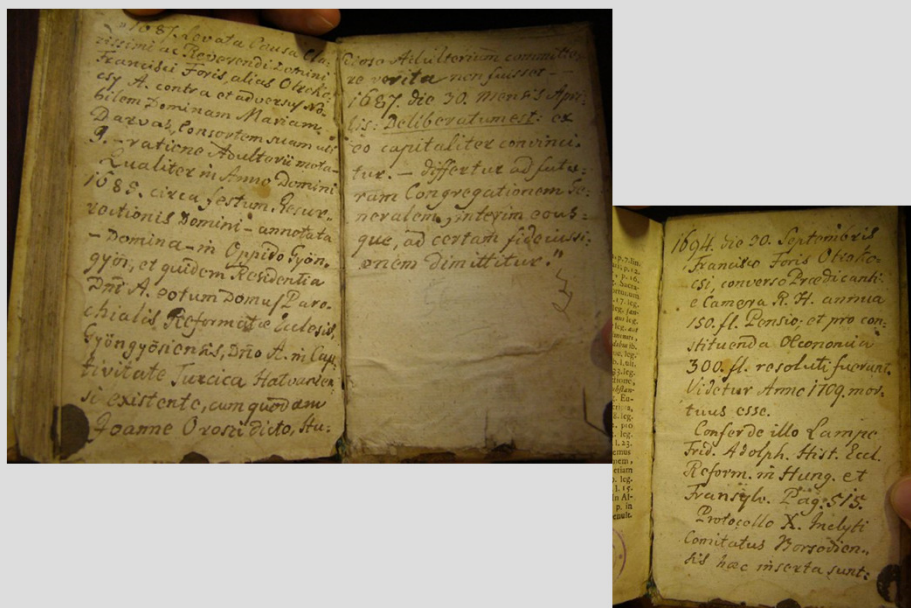 1687. Levata Causa Cla-
rissimi ac Reverendi Domini
Francisci Foris, alias Otroko-
csy A. contra et adversus No-
bilem Dominam Mariam
Darvas, Consortem suam uti
J. - ratione Adulterii mota-
Qualiter in Anno Domini
1685. circa festum Resur-
rectionis Domini - annotata
- Domina - in Oppido Gyön-
gyös, et quidem Residentia
Dñi A. totum Domus Paro-
chialis Reformatæ Ecclesiæ
Gyöngyösiensis, Dño A. in Cap-
tivitate Turcica Hatvanien
si existente, cum quodam
Joanne Oroszi dicto, Stu-
dioso Adulterium committe-
re verita non fuisset - -
1687. die 30. Mensis Apri-
lis: Deliberatum est: ex
eo capitaliter convinci-
tur. - differtur ad futu-
ram Congregationem Ge-
neralem, interim eous-
que, ad certam fideiussi-
onem dimittitur."
1694. die 20. Septembris
Francisco Foris Otroko-
csi, converso Prædicanti
e Camera R. H. annua
150. fl. Pensio, et pro con-
stituenda Oeconomia
300. fl. resoluti fuerunt.
Videtur Anno 1709 mor-
tuus esse.
Confer de illo Lampe
Frid. Adolph. Hist. Eccl.
Reform. in Hung. et
Transylv. Pag. 515.
Protocollo X. Inclyti
Comitatus Borsodien-
sis hæc inserta sunt: